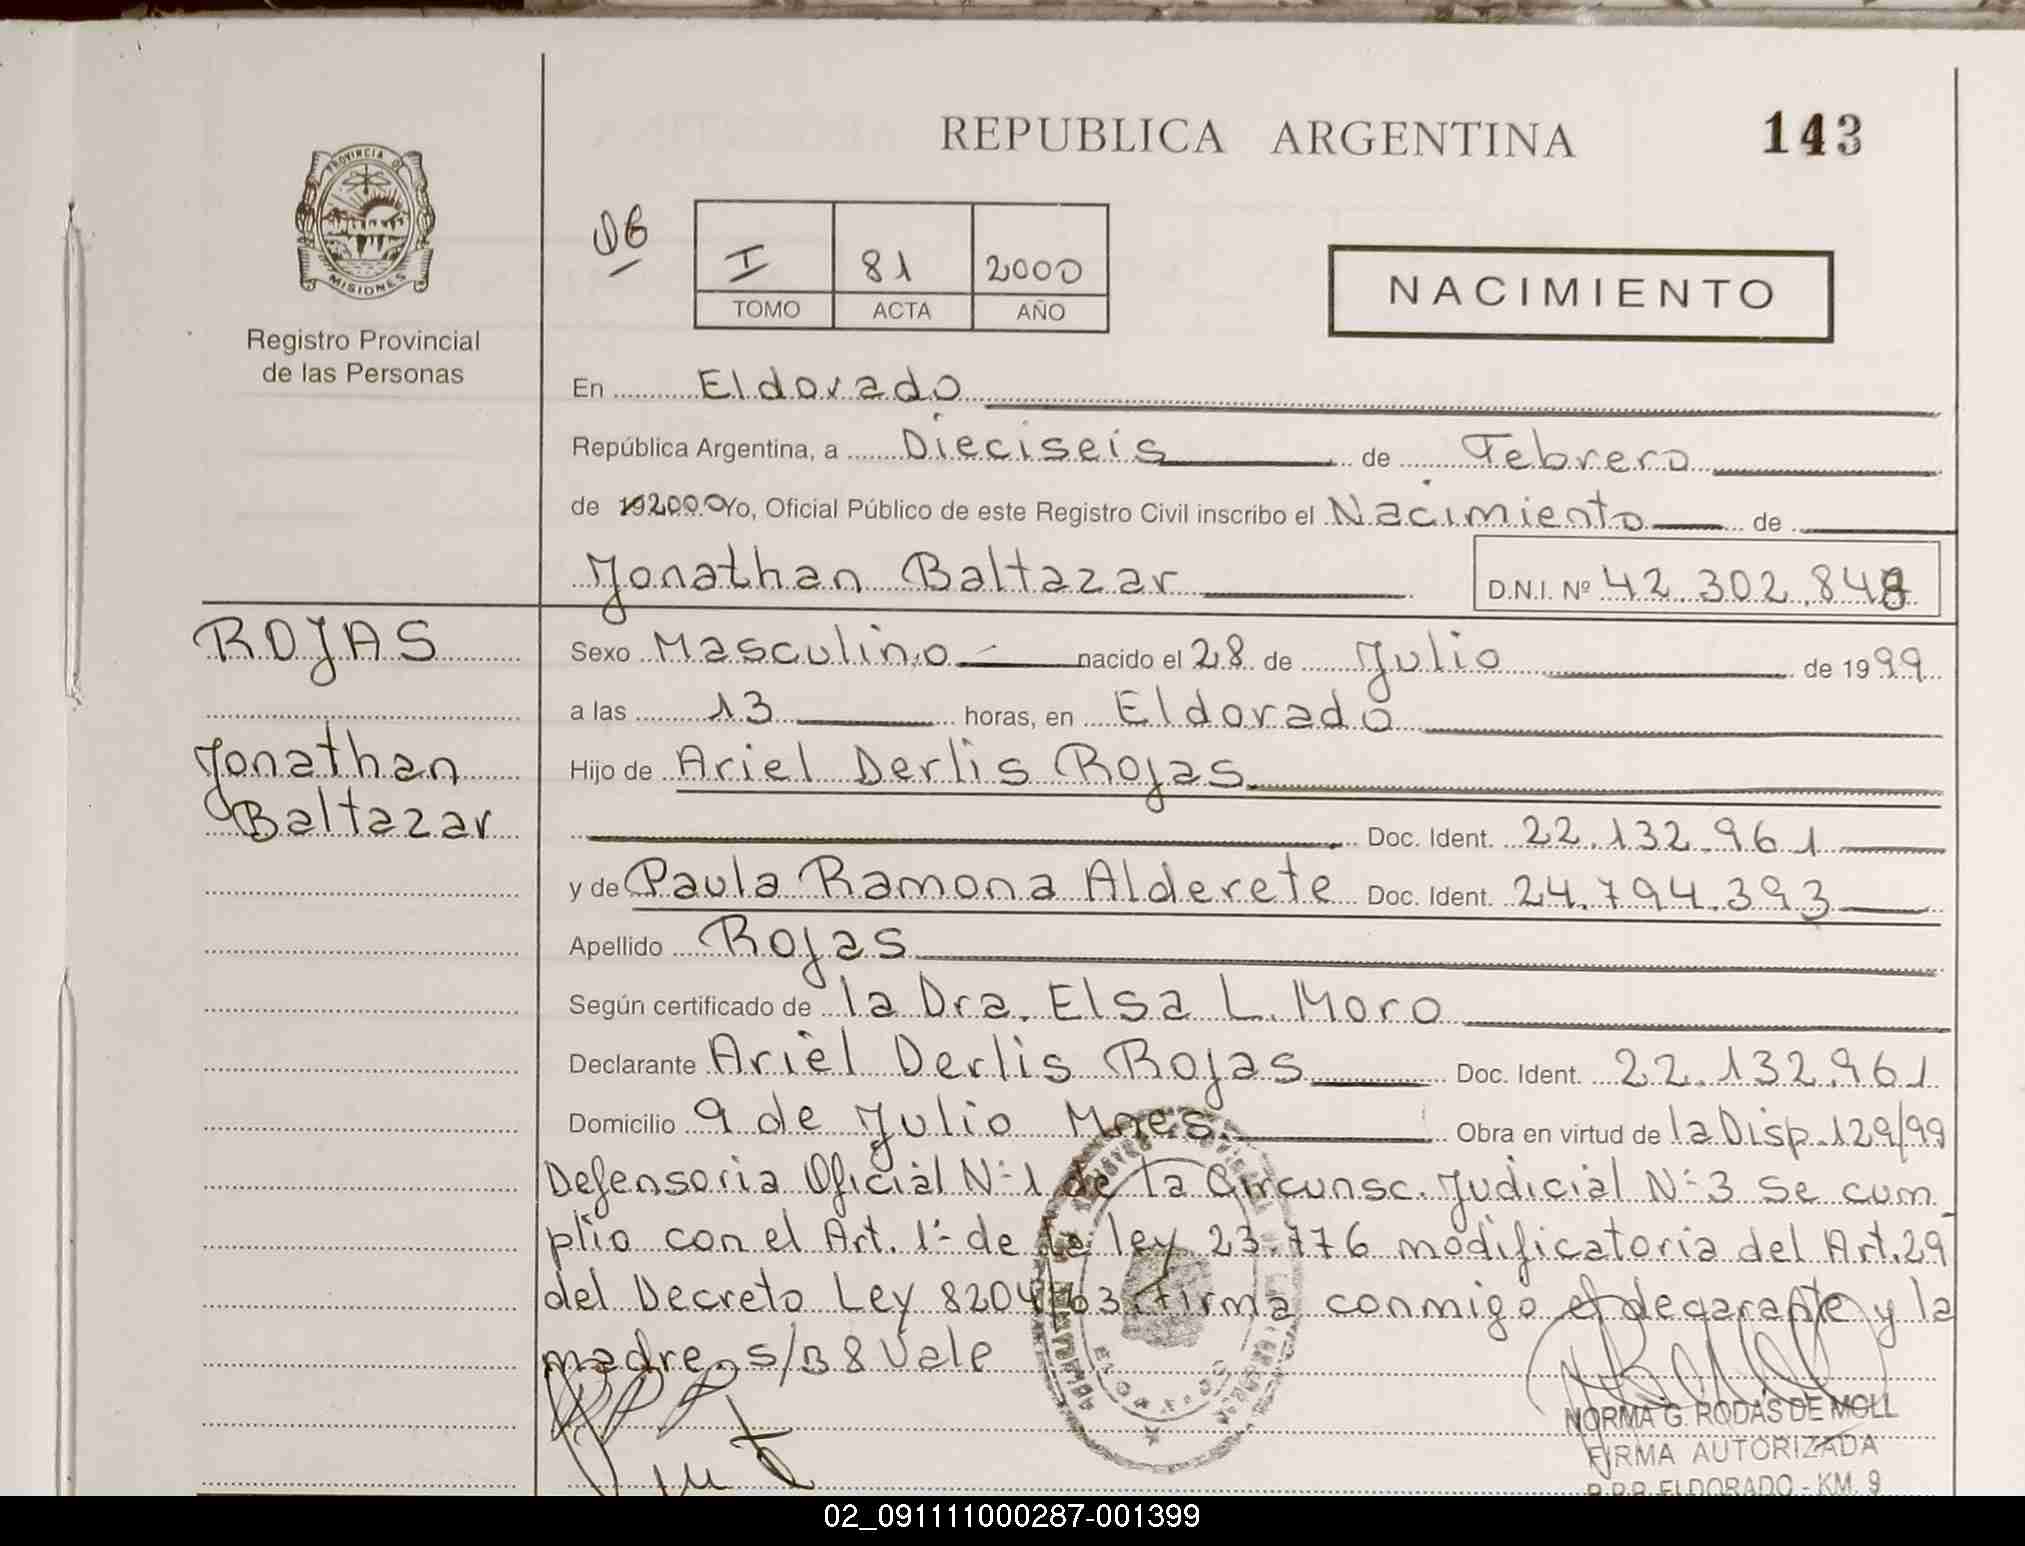 REPUBLICA ARGENTINA
143
PROVINCIA DE
MISIONES
Registro Provincial
de las Personas
I 81 2000
TOMO ACTA AÑO
NACIMIENTO
En Eldorado
República Argentina, a Dieciseis de Febrero
de 192000 Yo, Oficial Público de este Registro Civil inscribo el Nacimiento de
Jonathan Baltazar D.N.I. Nº 42.302.848
ROJAS
Jonathan
Baltazar
Sexo Masculino nacido el 28 de Julio de 1999
a las 13 horas, en Eldorado
Hijo de Ariel Derlis Rojas
Doc. Ident. 22.132.961
y de Paula Ramona Alderete Doc. Ident. 24.794.393
Apellido Rojas
Según certificado de la Dra. Elsa L. Moro
Declarante Ariel Derlis Rojas Doc. Ident. 22.132.961
Domicilio 9 de Julio Mnes. Obra en virtud de la Disp. 129/99
Defensoria Oficial Nº 1 de la Circunsc. Judicial Nº 3 se cum
plio con el Art. 1º de la ley 23.776 modificatoria del Art. 29
del Decreto Ley 8204/63. Firma conmigo el degarante y la
madre, s/B 8 Vale
ELDORADO
NORMA G. RODAS DE MOLL
FIRMA AUTORIZADA
R.P.P. ELDORADO - KM. 9
02_091111000287-001399